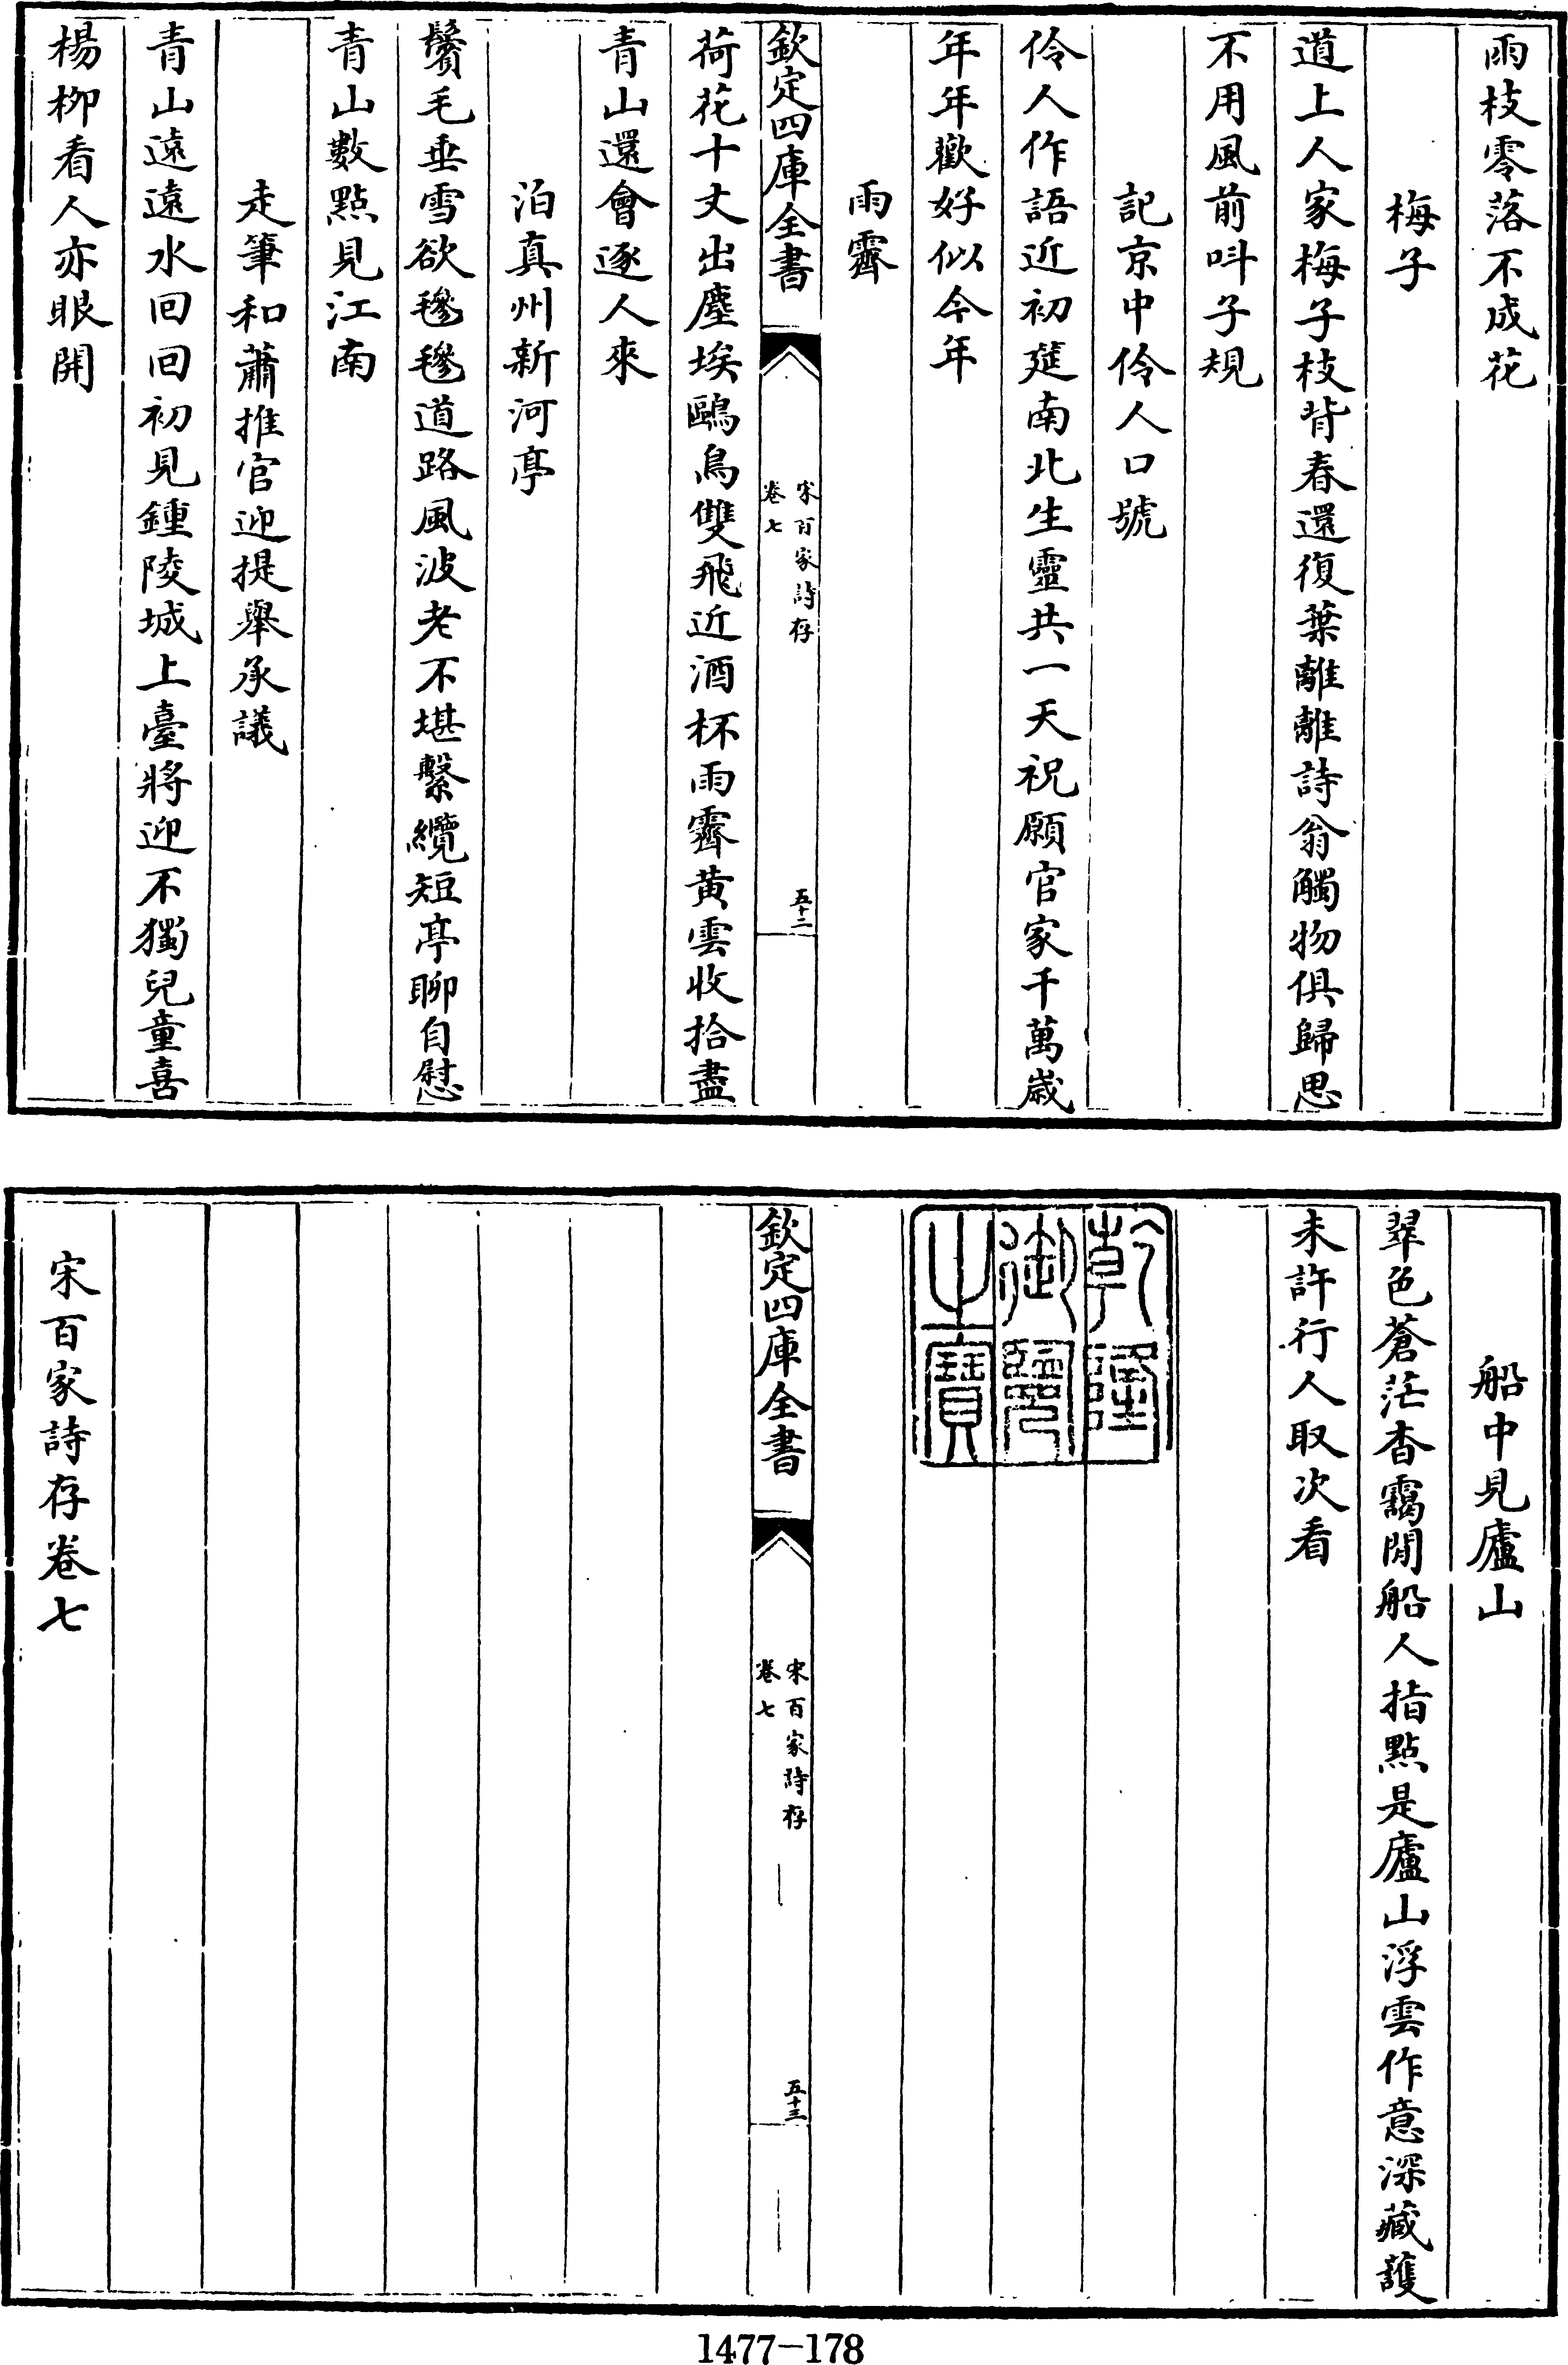 雨枝零落不成花
梅子
道上人家梅子枝背春還復葉離離詩翁觸物俱歸思
不用風前叫子規
記京中伶人口號
伶人作語近初筵南北生靈共一天祝願官家千萬歲
年年歡好似今年
雨霽
欽定四庫全書
宋百家詩存
卷七
五十二
荷花十丈出塵埃鷗鳥雙飛近酒杯雨霽黄雲收拾盡
青山還會逐人來
泊真州新河亭
鬢毛垂雪欲毿毿道路風波老不堪繫纜短亭聊自慰
青山數點見江南
走筆和蕭推官迎提舉承議
青山遠遠水回回初見鍾陵城上臺將迎不獨兒童喜
楊柳看人亦眼開
船中見廬山
翠色蒼茫杳靄間船人指點是廬山浮雲作意深藏護
未許行人取次看
乾隆
御覽
之寶
欽定四庫全書
宋百家詩存
卷七
五十三
宋百家詩存卷七
1477-178